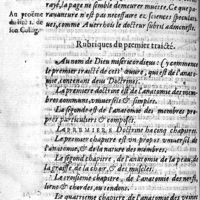 ray, la page ne semble demeurer muette. Ce que pa-
ravanture n'est pas necessaire es sciences specula-
ues, comme Auerrhois le docteur subtil admoneste.
Au proëme
du liu. 1. de
son Collig.
Rubriques du premier traicté.
Au nom de Dieu misericordieux: Cy commence
le premier traicté de cest œuure, qui est de l'anatomie,
contenant deux Doctrines.
La premiere doctrine est de l'anatomie des membres
communs, vniuersels & simples.
La seconde est de l'anatomie des membres pro-
pres particuliers & composés.
LA PREMIERE Doctrine ha cinq chapitres.
Le premier chapitre est vn propos vniuersel de
l'anatomie, & de la nature des membres.
Le second chapitre, de l'anatomie de la peau, de
la graisse, de la chair, & des muscles.
Le troisieme chapitre, de l'anatomie des nerfs,
lieus & chordes, ou tendons.
Le quatrieme chapitre de l'anatomie des veines